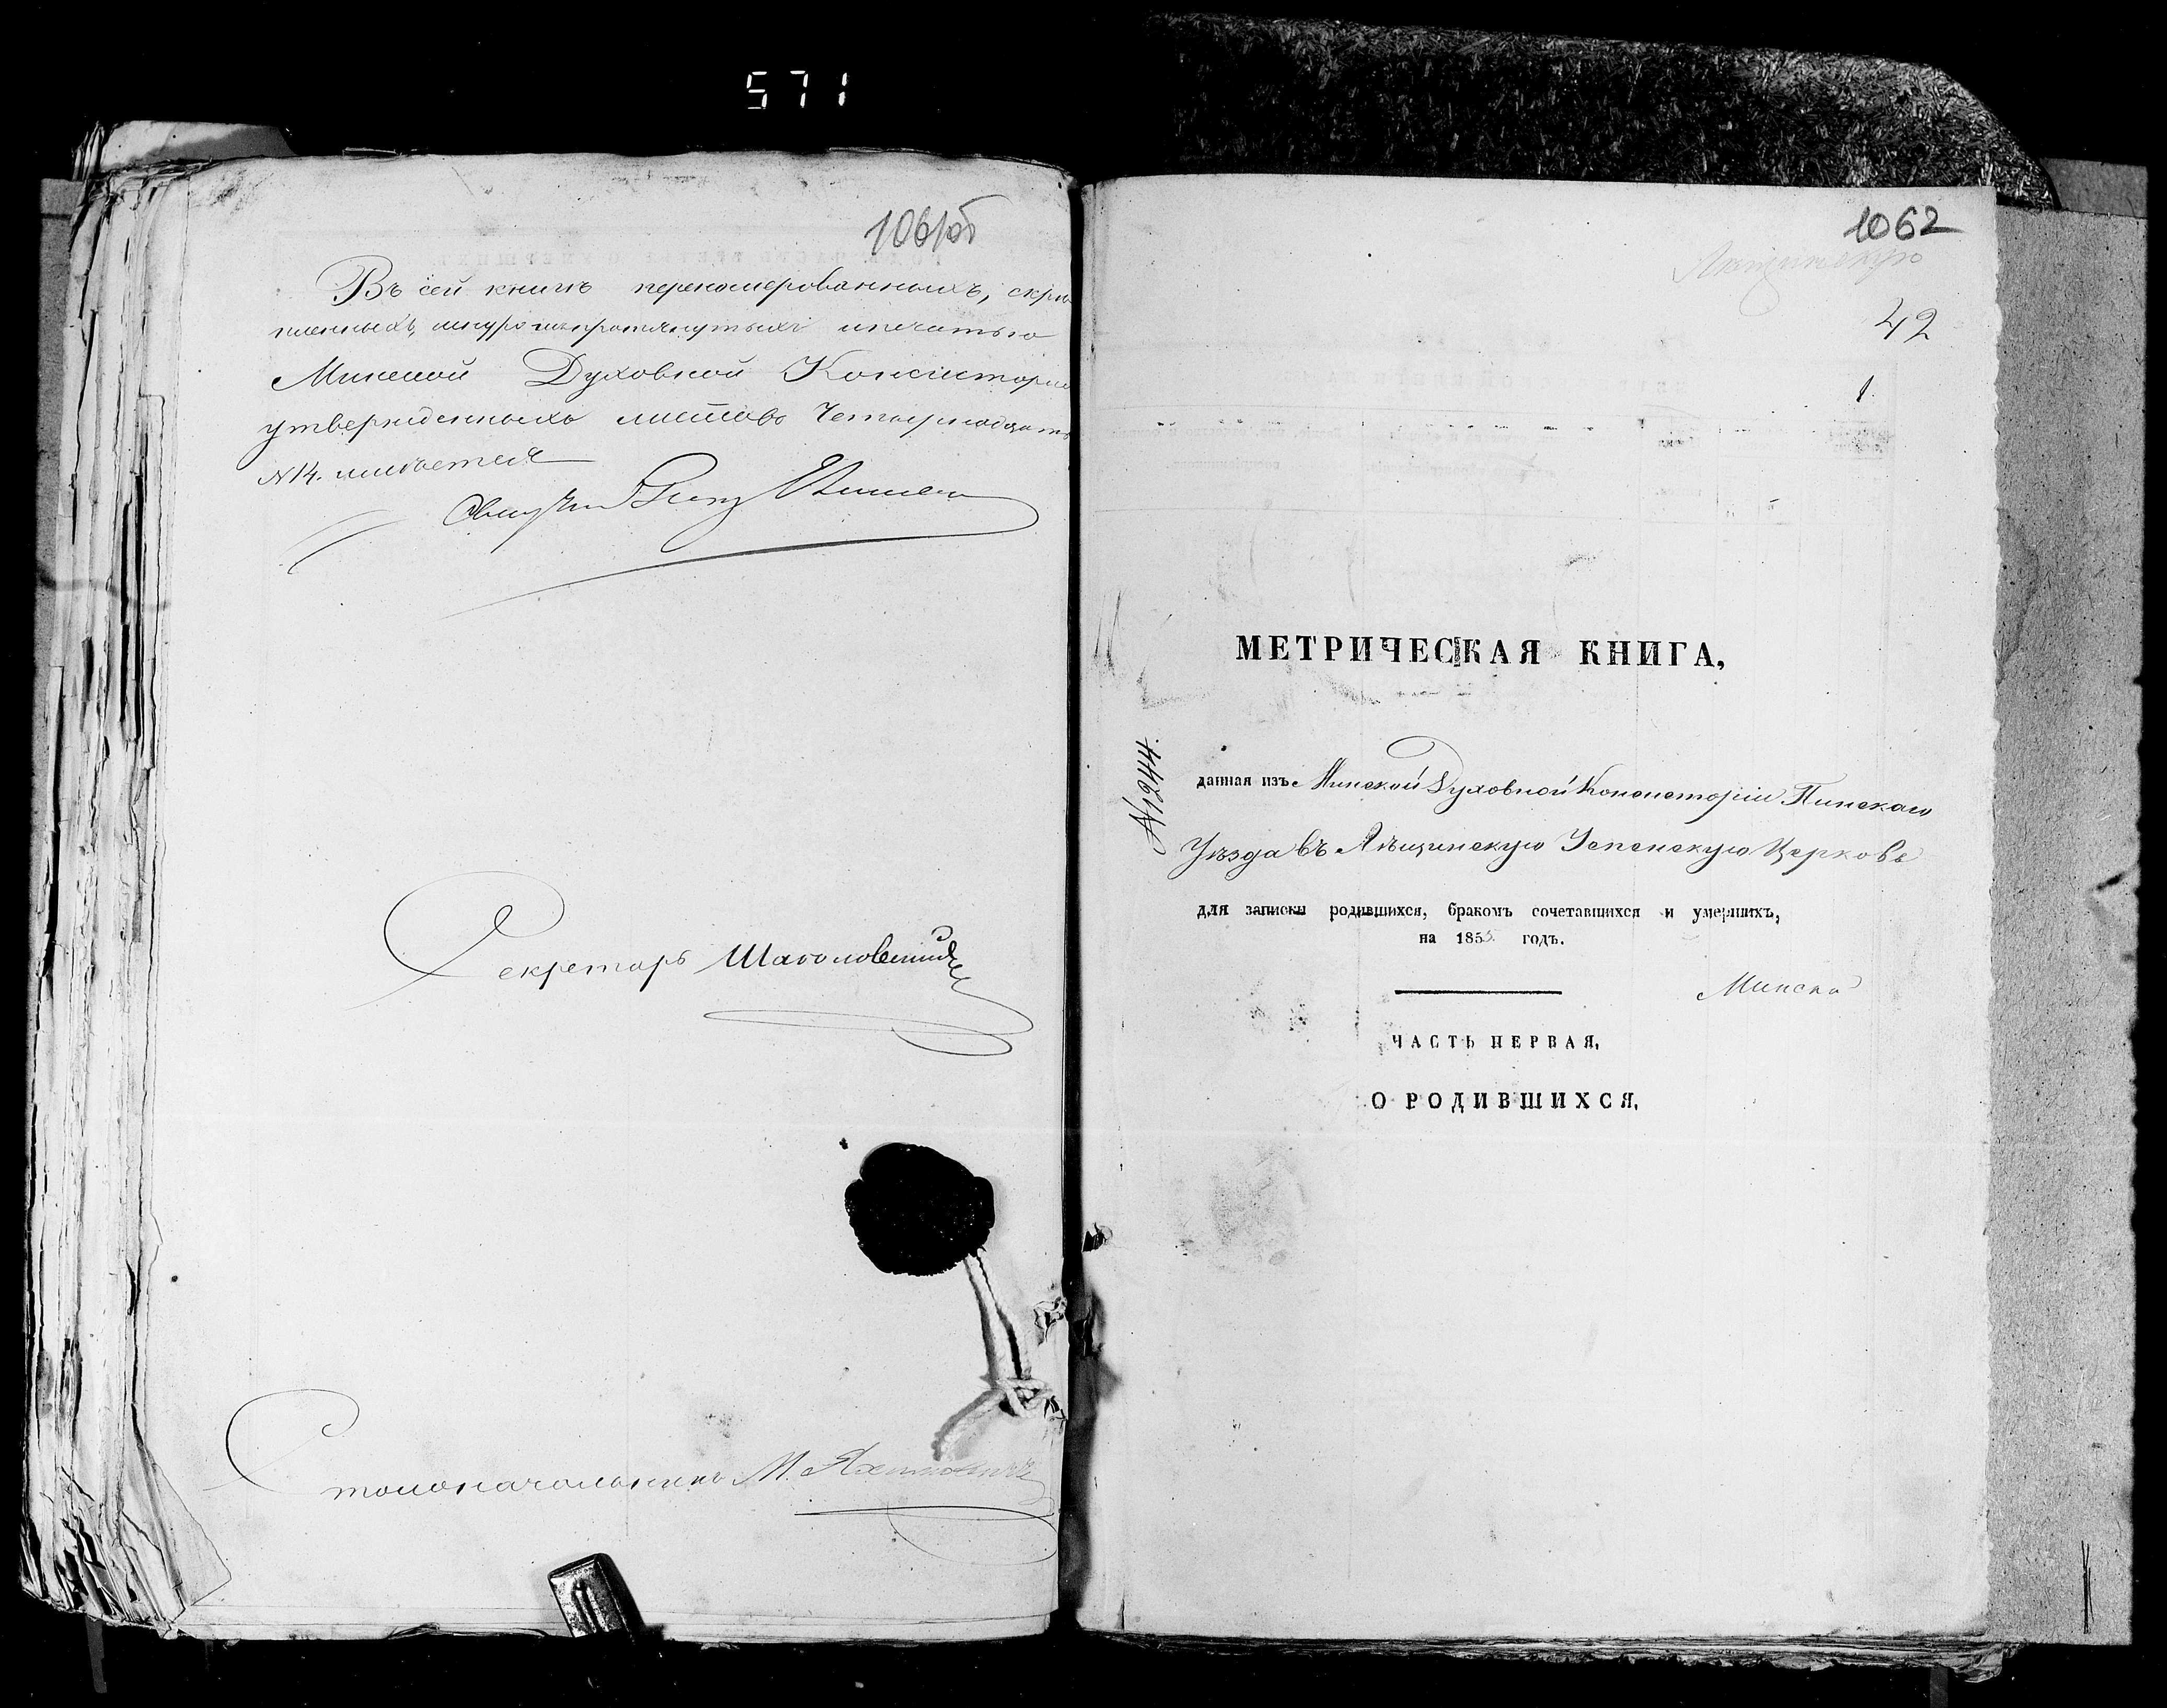 571
1061об
Въ сей книгѣ перенумерованныхъ, скрѣ
пленныхъ, шнуромъ протянутыхъ и печатью
Минской Духовной Консисторіи
утвержденныхъ листовъ Четырнадцать
№ 14. имѣется
Секретарь
Столоначальникъ М.
1062
42
1.
МЕТРИЧЕСКАЯ КНИГА,
№1244.
данная изъ Минской Духовной Консисторіи Пинскаго
Уѣзда въ Лѣщинскую Успенскую Церковь
для записки родившихся, бракомъ сочетавшихся и умершихъ,
на 1855 годъ.
Минска
ЧАСТЬ ПЕРВАЯ,
О РОДИВШИХСЯ,